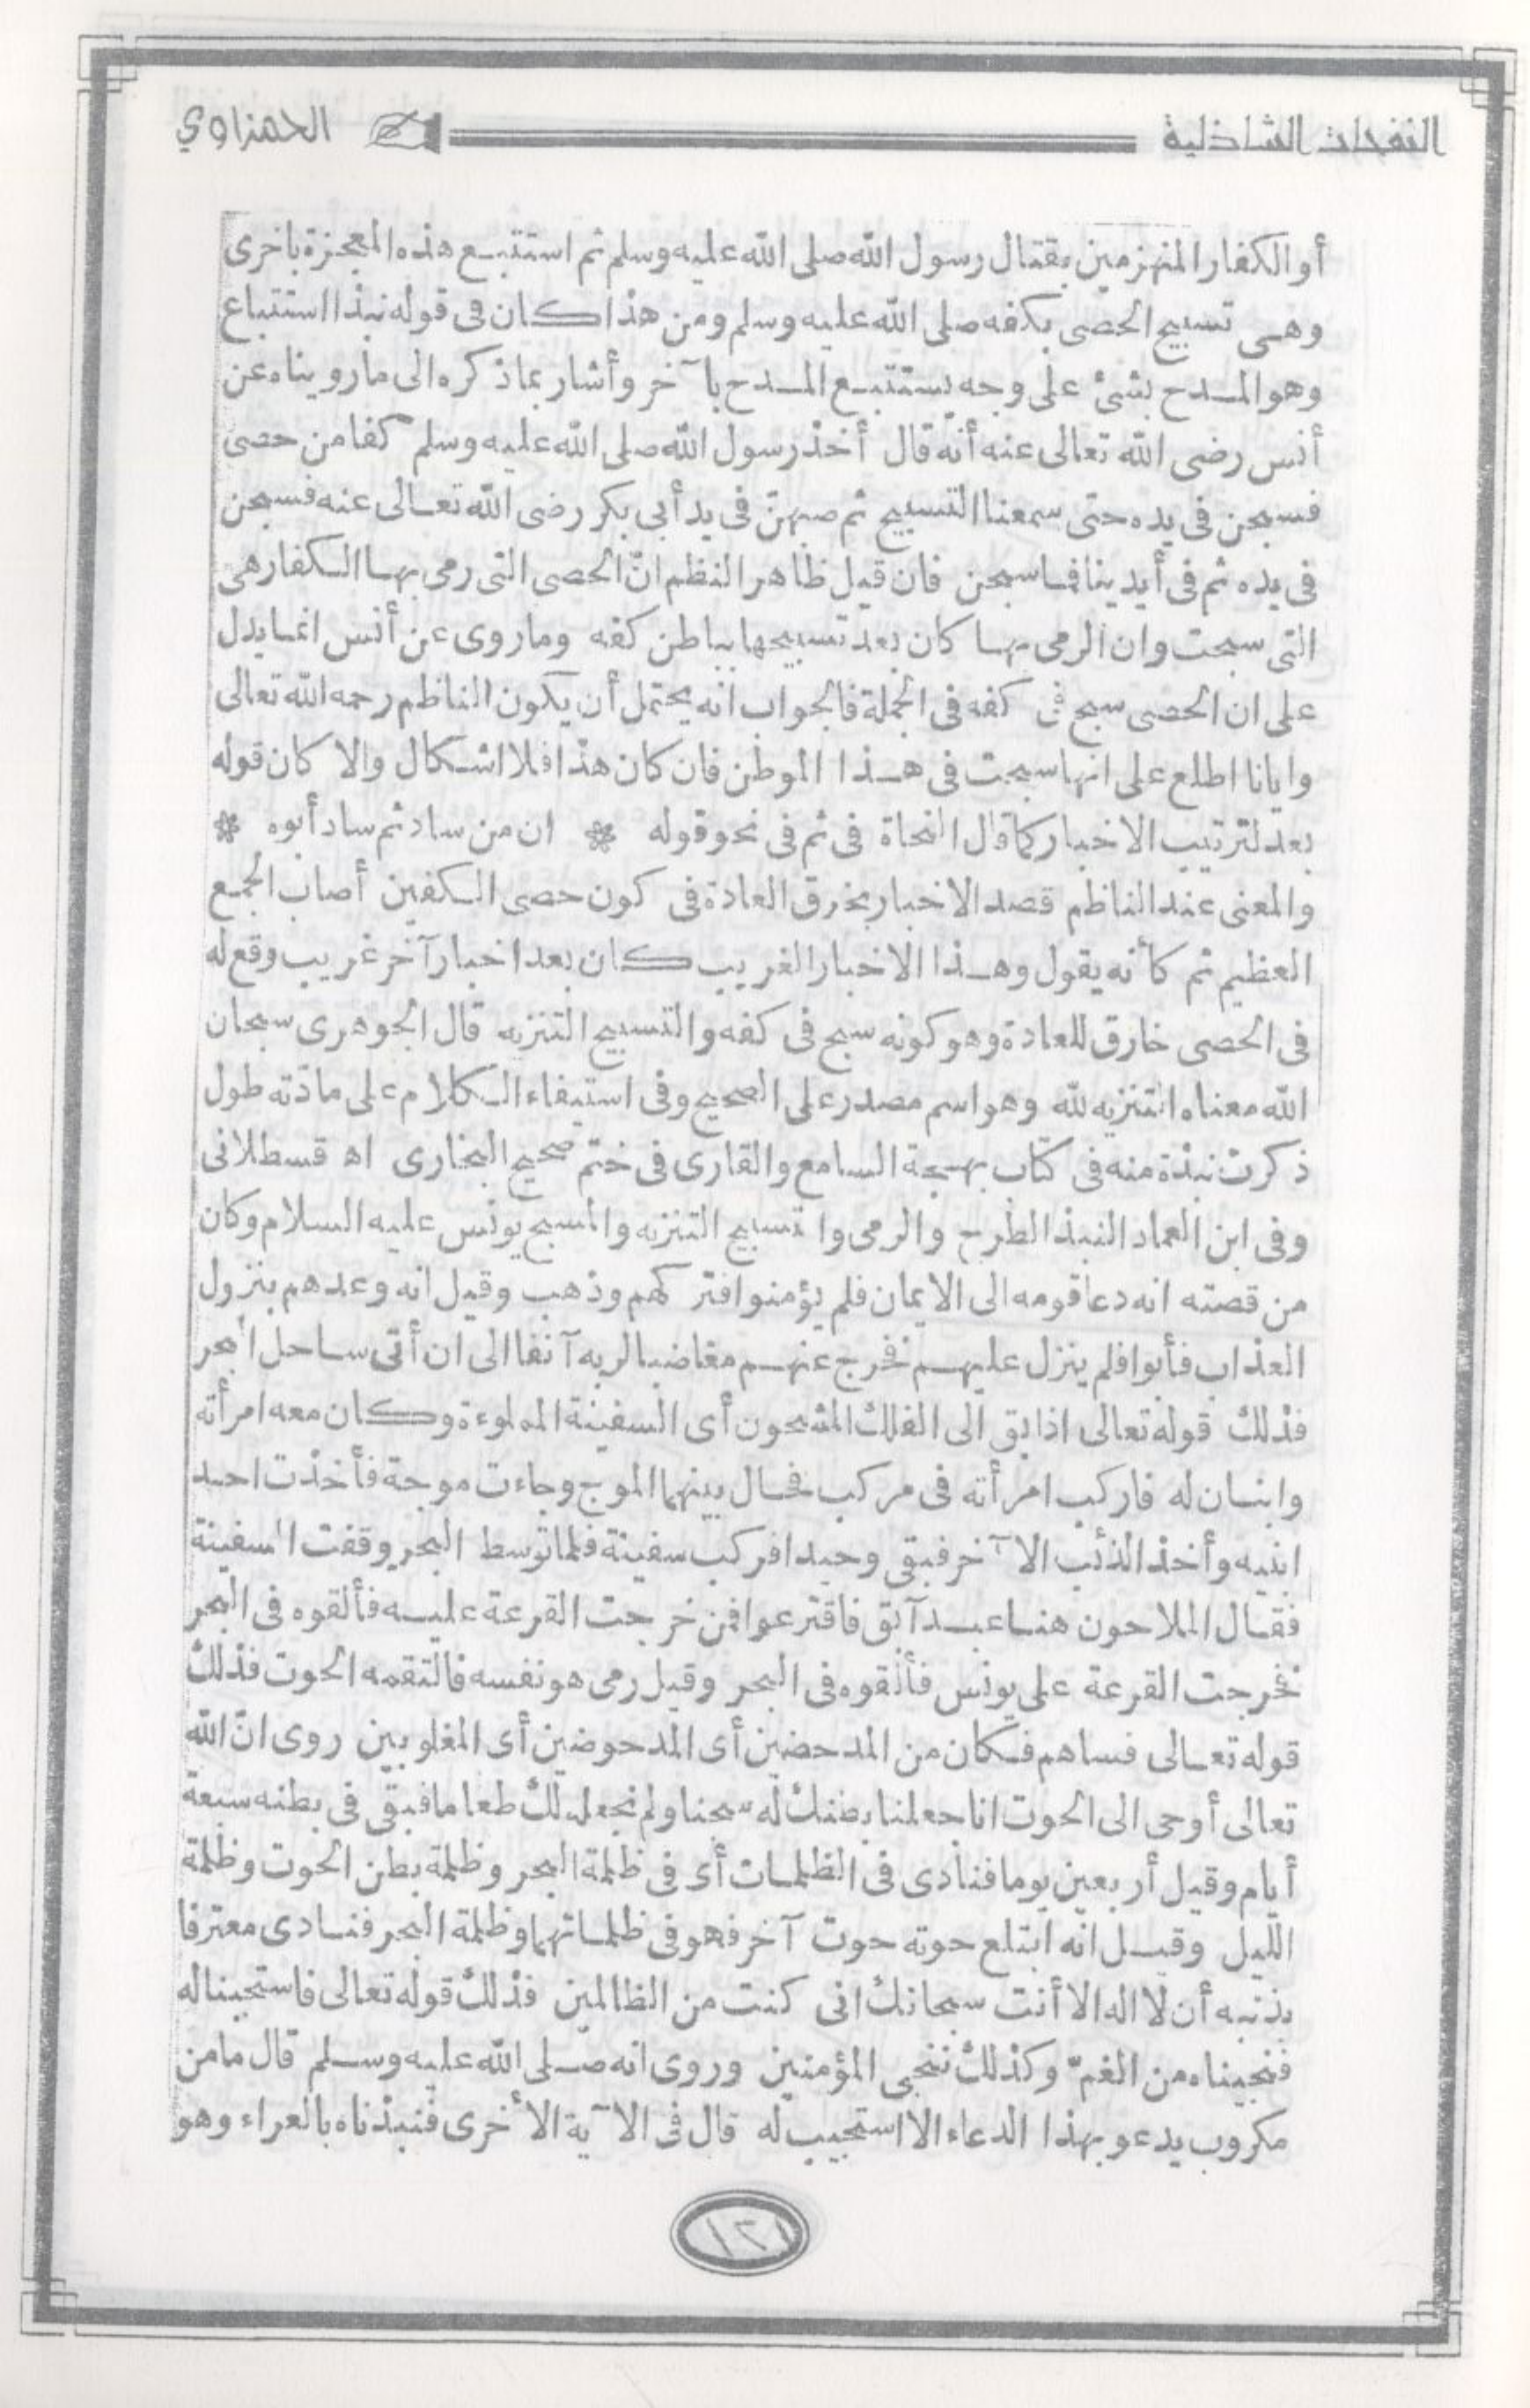 النفحات الشاذلية الحمزاوي
أو الكفار المنهزمين بقتال رسول الله صلى الله عليه وسلم ثم استتبع هذه المعجزة باخرى
وهى تسبيح الحصى بكفه صلى الله عليه وسلم ومن هذا كان فى قوله نبذا استتباع
وهو المدح بشئ على وجه يستتبع المدح بآخر وأشار بماذكره الى مارويناه عن
أنس رضى الله تعالى عنه أنه قال أخذ رسول الله صلى الله عليه وسلم كفا من حصى
فسبحن فى يده حتى سمعنا التسبيح ثم صبهنّ فى يد أبى بكر رضى الله تعالى عنه فسبحن
فى يده ثم فى أيدينا فما سبحن فان قيل ظاهر النظم انّ الحصى التى رمى بها الكفار هى
التى سبحت وان الرمى بها كان بعد تسبيحها بباطن كفه وماروى عن أنس انما يدل
على ان الحصى سبح فى كفه فى الجملة فالجواب انه يحتمل أن يكون الناظم رحمه الله تعالى
وايانا اطلع على انها سبحت فى هذا الموطن فان كان هذا فلا اشكال والا كان قوله
بعد لترتيب الاخبار كما قال النحاة فى ثم فى نحو قوله * ان من ساد ثم ساد أبوه *
والمعنى عند الناظم قصد الاخبار بخرق العادة فى كون حصى الكفين أصاب الجمع
العظيم ثم كأنه يقول وهذا الاخبار الغريب كان بعد اخبار آخر غريب وقع له
فى الحصى خارق للعادة وهو كونه سبح فى كفه والتسبيح التنزيه قال الجوهرى سبحان
الله معناه التنزيه لله وهو اسم مصدر على الصحيح وفى استيفاء الكلام على مادّته طول
ذكرت نبذة منه فى كتاب بهجة السامع والقارى فى ختم صحيح البخارى اه قسطلانى
وفى ابن العماد النبذ الطرح والرمى والتسبيح التنزيه والمسبح يونس عليه السلام وكان
من قصته انه دعا قومه الى الايمان فلم يؤمنوا فتركهم وذهب وقيل انه وعدهم بنزول
العذاب فأبوا فلم ينزل عليهم فخرج عنهم مغاضبا لربه آنفا الى ان أتى ساحل البحر
فذلك قوله تعالى اذ ابق الى الفلك المشحون أى السفينة المملوءة وكان معه امرأته
وابنان له فاركب امرأته فى مركب فحال بينهما الموج وجاءت موجة فأخذت احد
ابنيه وأخذ الذئب الآخر فبقى وحيدا فركب سفينة فلما توسط البحر وقفت السفينة
فقال الملاحون هنا عبد آبق فاقترعوا فمن خرجت القرعة عليه فألقوه فى البحر
فخرجت القرعة على يونس فألقوه فى البحر وقيل رمى هو نفسه فالتقمه الحوت فذلك
قوله تعالى فساهم فكان من المدحضين أى المدحوضين أى المغلوبين روى انّ الله
تعالى أوحى الى الحوت انا جعلنا بطنك له سجنا ولم نجعله لك طعاما فبقى فى بطنه سبعة
أيام وقيل أربعين يوما فنادى فى الظلمات أى فى ظلمة البحر وظلمة بطن الحوت وظلمة
الليل وقيل انه ابتلع حوته حوت آخر فهو فى ظلماتهما وظلمة البحر فنادى معترفا
بذنبه أن لا اله الا أنت سبحانك انى كنت من الظالمين فذلك قوله تعالى فاستجبنا له
فنجيناه من الغمّ وكذلك ننجى المؤمنين وروى انه صلى الله عليه وسلم قال ما من
مكروب يدعو بهذا الدعاء الا استجيب له قال فى الآية الأخرى فنبذناه بالعراء وهو
١٢١